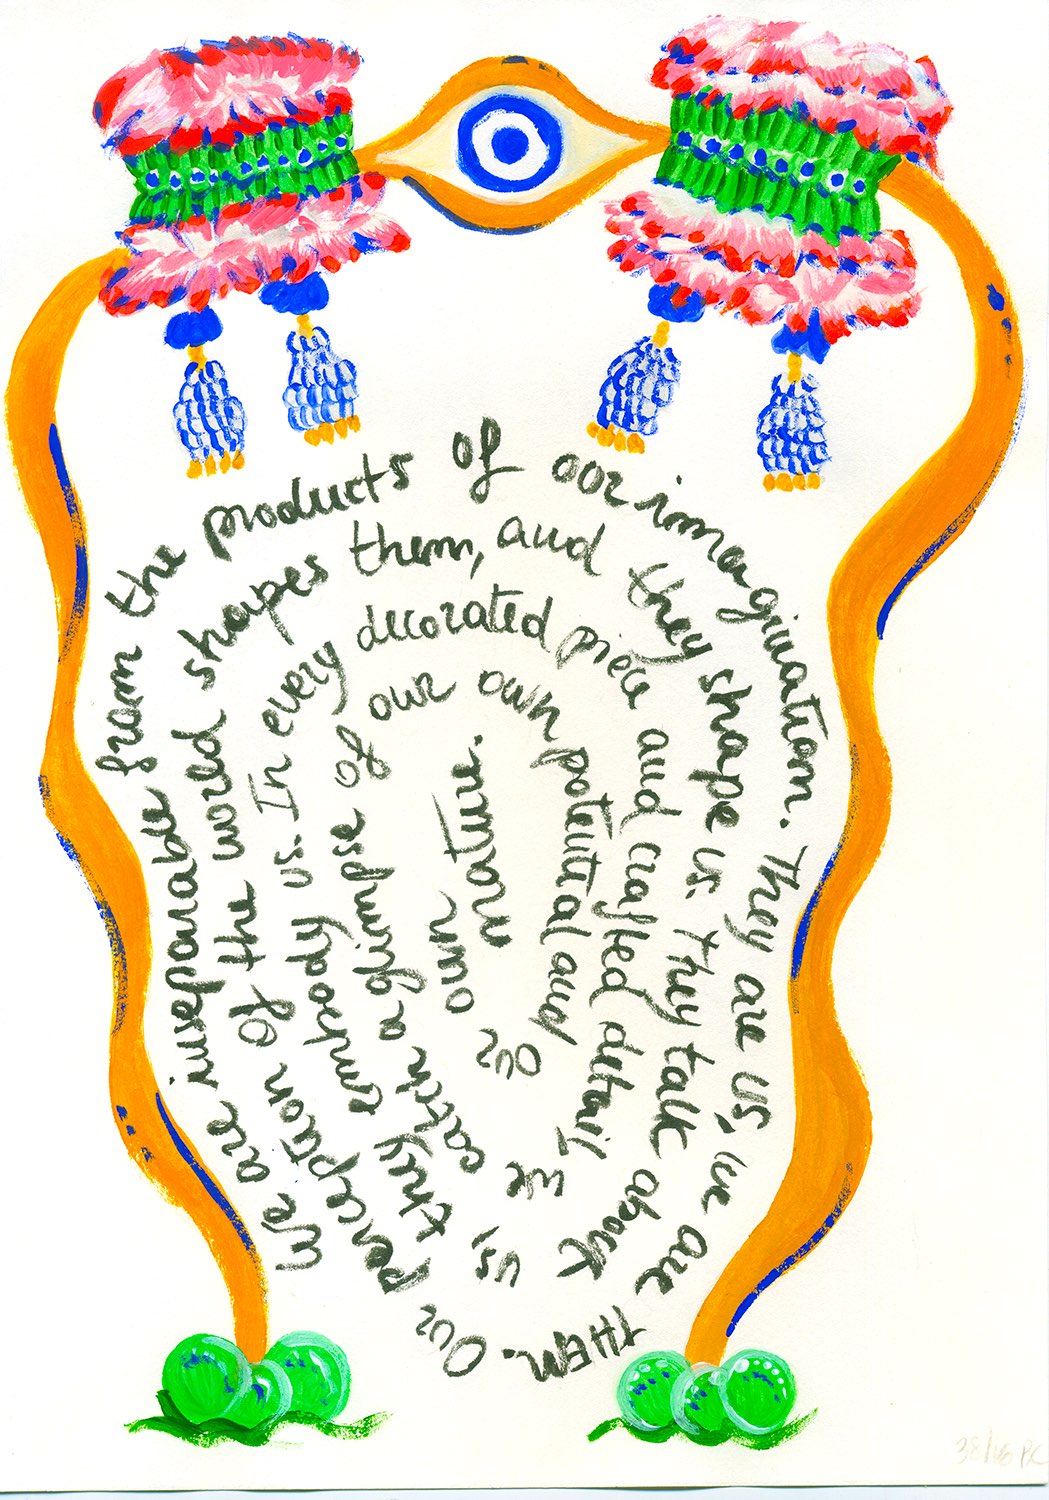 We are inseparable from the products of our imagination. They are us, we are THEM.
Our perception of the world shapes them, and they shape us. They talk about us,
they embody us. In every decorated piece and crafted detail, we
catch a glimpse of our own potential and
our own nature.